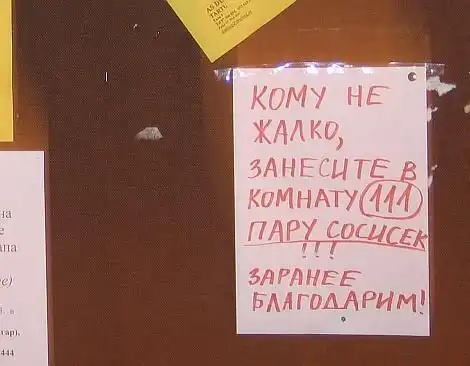 AS D
TARTU
КОМУ НЕ
ЖАЛКО,
ЗАНЕСИТЕ В
КОМНАТУ 111
ПАРУ СОСИСЕК
!!!
ЗАРАНЕЕ
БЛАГОДАРИМ!
на
е
апа
е)
в
гар),
444